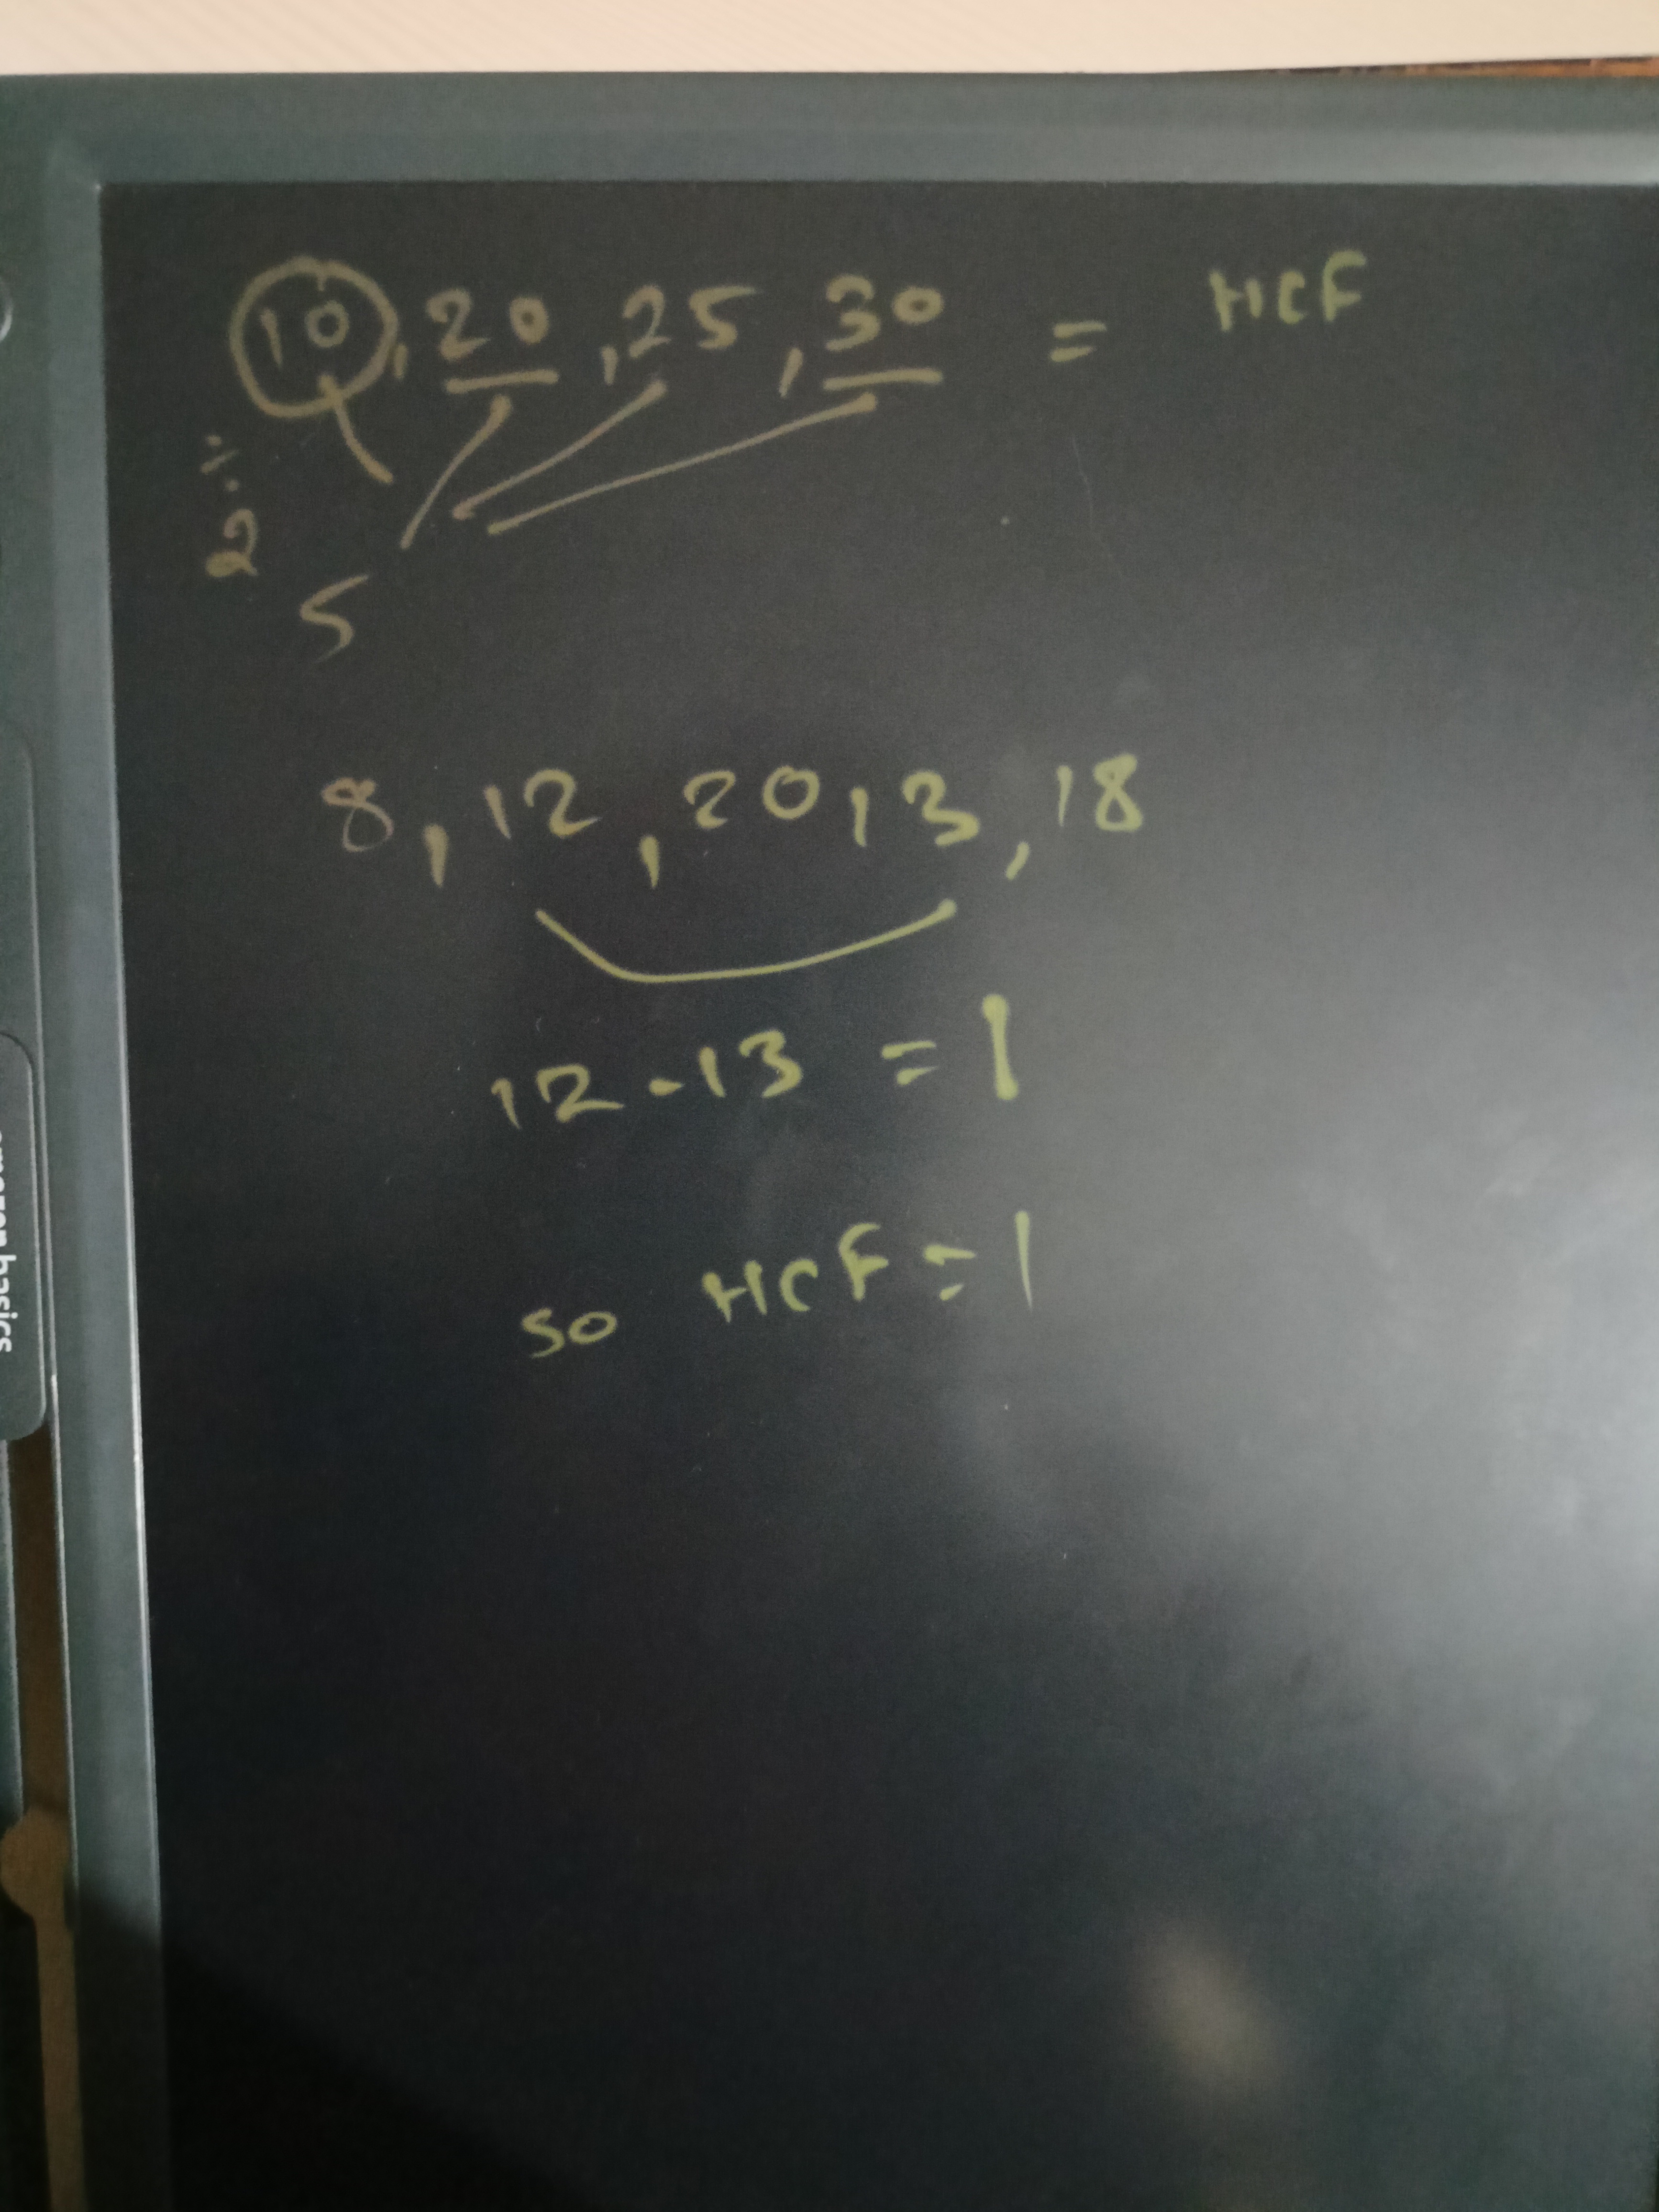 10, 20, 25, 30 = HCF
÷ 2
5
8, 12, 20, 13, 18
12 - 13 = 1
so HCF = 1
amazon basics